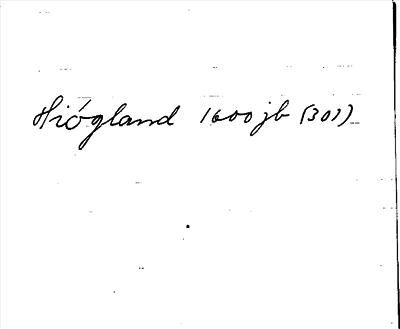 Hiógland 1600 jb (301)